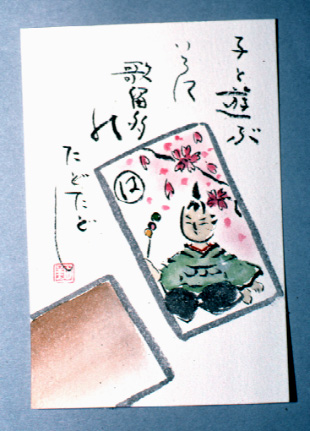 子と遊ぶ
いろは
歌留多
の
たどたどし
は